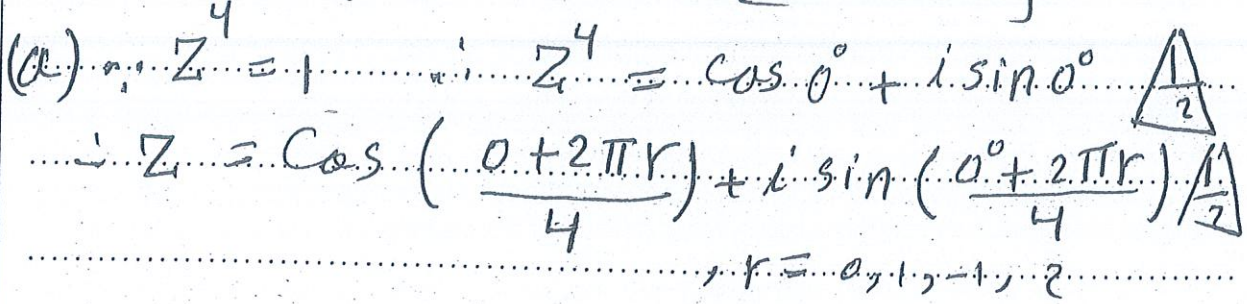 (a) ∵ Z⁴ = 1 ∴ Z⁴ = cos 0° + i sin 0° 1/2
∴ Z = Cos ( (0 + 2πr)/4 ) + i sin ( (0° + 2πr)/4 ) 1/2
, r = 0, 1, -1, 2